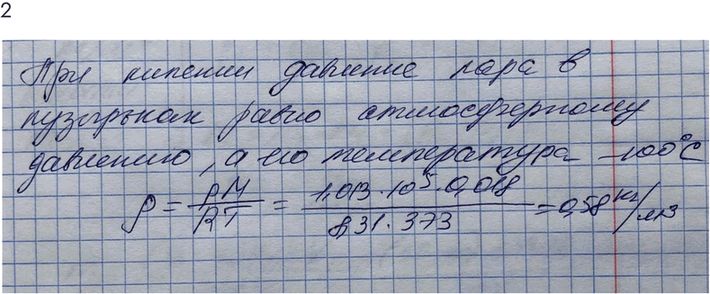 2
При кипении давление пара в
пузырьках равно атмосферному
давлению, а его температура – 100°С
ρ = pM/RT = 1,013 · 10⁵ · 0,018 / 8,31 · 373 = 0,58 кг/м3